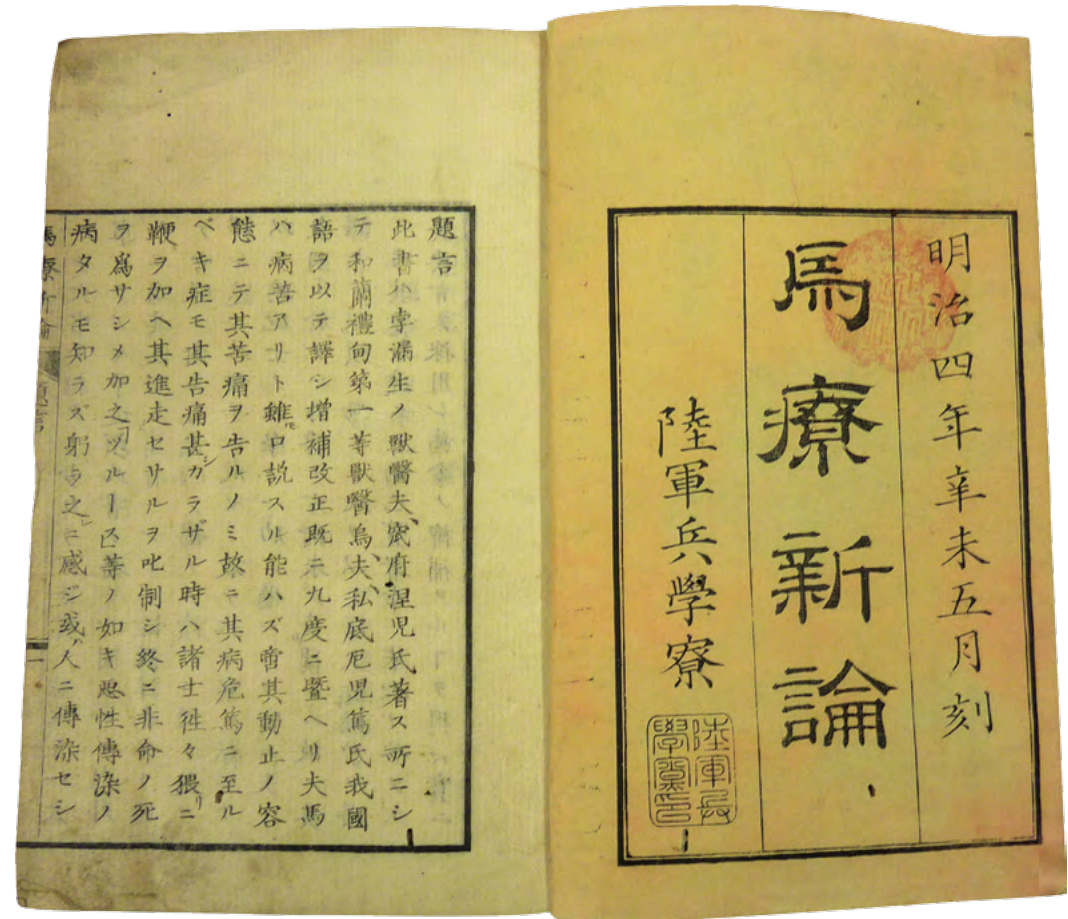 明治四年辛未五月刻
馬療新論
陸軍兵學寮
陸軍兵
學寮印
題言
此書ハ孛漏生ノ獸醫夫、窊府涅児氏著ス所ニシ
テ和蘭禮甸第一等獸醫烏、夫、私底厄児篤氏我國
語ヲ以テ譯シ增補改正既ニ九度ニ曁ヘリ夫馬
ハ病苦アリト雖モ口説スル能ハズ啻其動止ノ容
態ニテ其苦痛ヲ告ルノミ故ニ其病危篤ニ至ル
ベキ症モ其告痛甚シカラザル時ハ諸士徃々猥リニ
鞭ヲ加ヘ其進走セサルヲ叱制シ終ニ非命ノ死
ヲ爲サシメ加之ヅルース等ノ如キ悪性傳染ノ
病タルモ知ラズ躬カラ之ニ感シ或ハ人ニ傳染セシ
馬療新論 題言 一